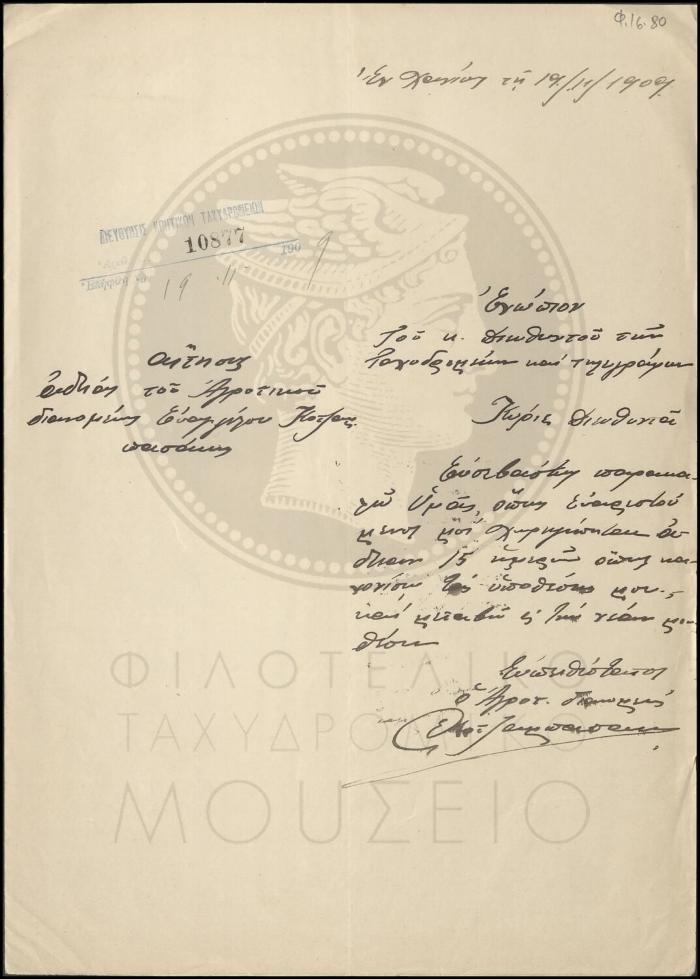 Φ.16.80
Ἐν Χανίοις τῇ 19/11/1909
ΔΙΕΥΘΥΝΣΙΣ ΚΡΗΤΙΚΩΝ ΤΑΧΥΔΡΟΜΕΙΩΝ
10877
190 9
19 11
Ἐνώπιον
Τοῦ κ. Διευθυντοῦ τῶν
Ταχυδρομείων καὶ τηλεγράφων
Αἴτησις
ἀδείας τοῦ Ἀγροτικοῦ
διανομέως Εὐαγγέλου
Κύριε Διευθυντά
Εὐσεβάστως παρακα-
λῶ Ὑμᾶς, ὅπως εὐαρεστού
μενοι μοὶ χορηγήσητε ἄ
δειαν 15 ἡμερῶν ὅπως κα
νονίσω τὰς ὑποθέσεις μου,
καὶ μεταβῶ εἰς τὴν νέαν μου
θέσιν
Εὐπειθέστατος
ὁ Ἀγροτ. διανομεύς
ΦΙΛΟΤΕΛΙΚΟ
ΤΑΧΥΔΡΟΜΙΚΟ
ΜΟΥΣΕΙΟ